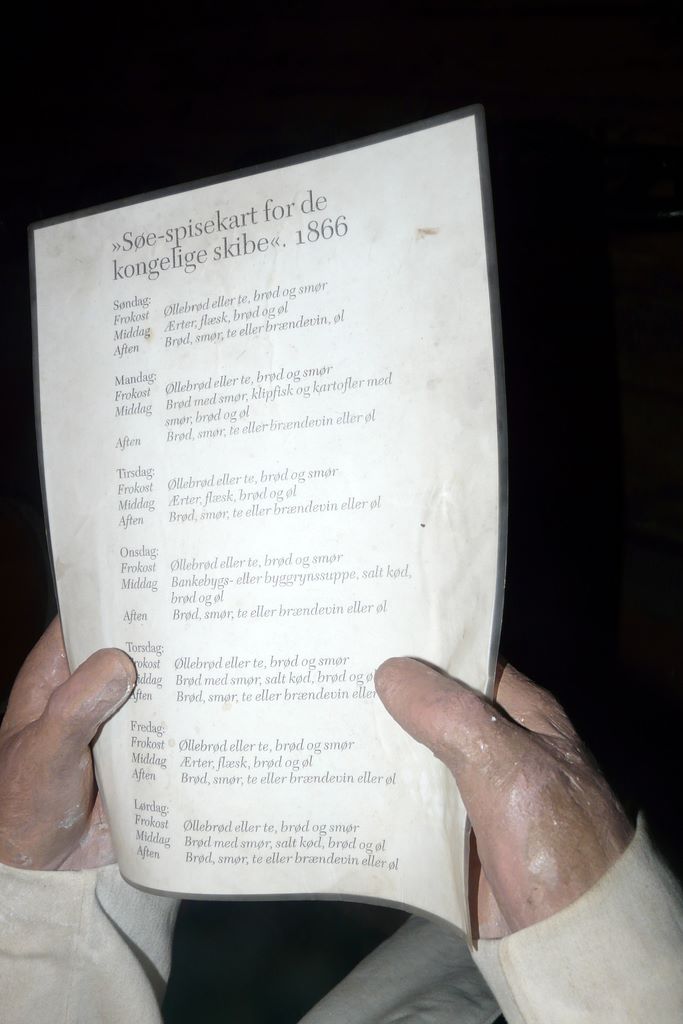 »Søe-spisekart for de
kongelige skibe«. 1866
Søndag:
Frokost Øllebrød eller te, brød og smør
Middag Ærter, flæsk, brød og øl
Aften Brød, smør, te eller brændevin, øl
Mandag:
Frokost Øllebrød eller te, brød og smør
Middag Brød med smør, klipfisk og kartofler med
smør, brød og øl
Aften Brød, smør, te eller brændevin eller øl
Tirsdag:
Frokost Øllebrød eller te, brød og smør
Middag Ærter, flæsk, brød og øl
Aften Brød, smør, te eller brændevin eller øl
Onsdag:
Frokost Øllebrød eller te, brød og smør
Middag Bankebygs- eller byggrynssuppe, salt kød,
brød og øl
Aften Brød, smør, te eller brændevin eller øl
Torsdag:
rokost Øllebrød eller te, brød og smør
iddag Brød med smør, salt kød, brød og ø
ften Brød, smør, te eller brændevin eller
Fredag:
Frokost Øllebrød eller te, brød og smør
Middag Ærter, flæsk, brød og øl
Aften Brød, smør, te eller brændevin eller øl
Lørdag:
Frokost Øllebrød eller te, brød og smør
Middag Brød med smør, salt kød, brød og øl
Aften Brød, smør, te eller brændevin eller øl